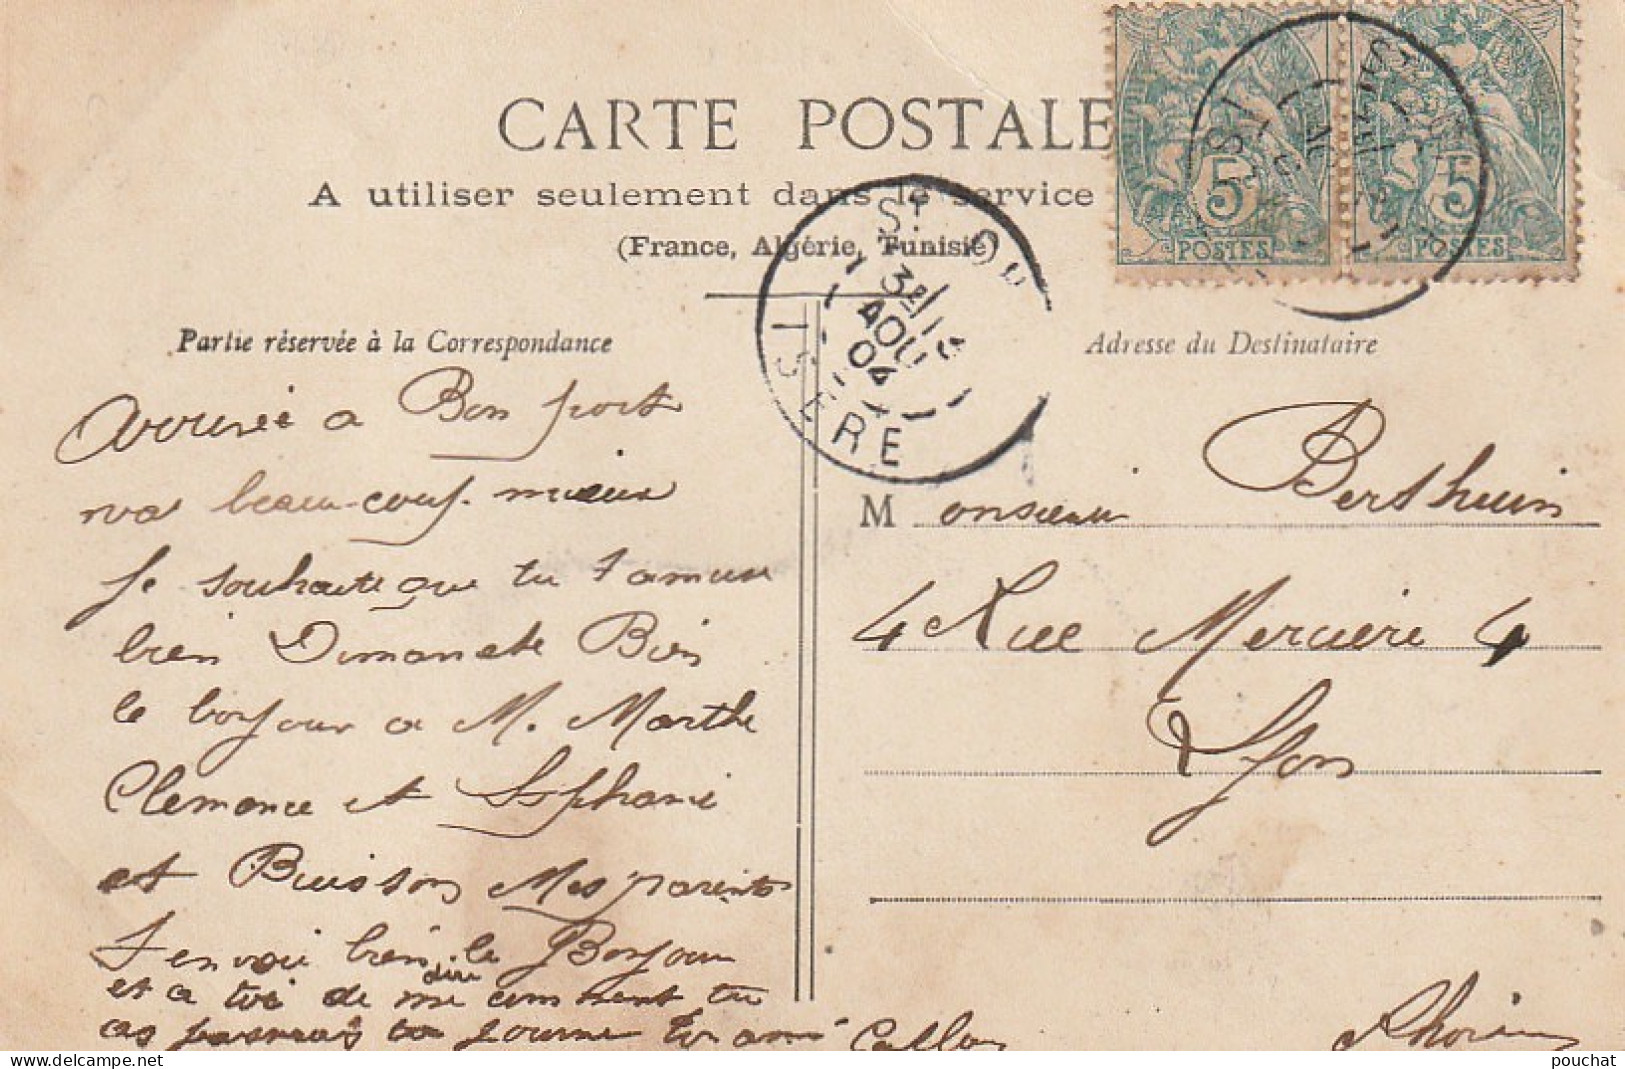 CARTE POSTALE
A utiliser seulement dans le service
(France, Algérie, Tunisie)
5
POSTES
5
POSTES
ST
3E/15
AOU
04
ISERE
Partie réservée à la Correspondance
Adresse du Destinataire
arrivée a Bon port
va beau-coup mieux
Je souhaite que tu t amuse
bien Dimanche Bien
le bonjour a M. Marthe
Clemence et Stephanie
et Buisson Mes parents
t envoie bien le Bonjour
et a toi de me dire comment tu
as ta journe ton ami
Monsieur Berthuin
4 Rue Merciere 4
Lyon
Rhone
pouchat